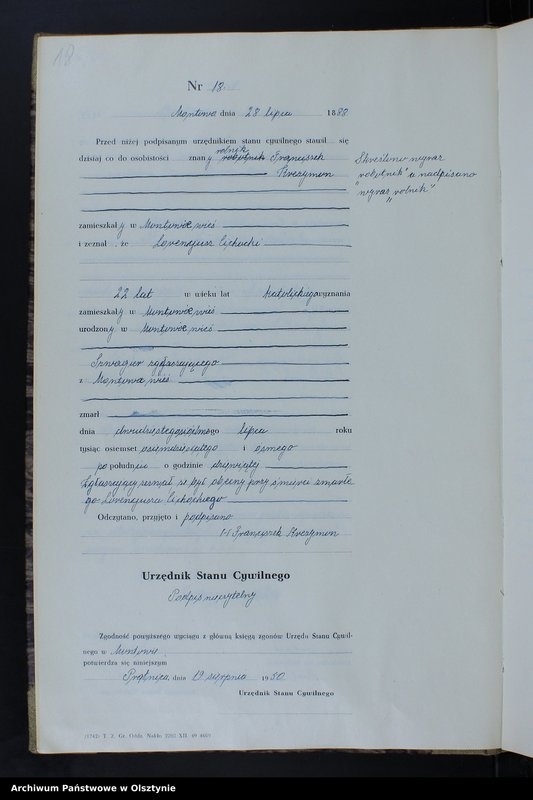 18
Nr 18.
Montowo dnia 28 lipca 1888
Przed niżej podpisanym urzędnikiem stanu cywilnego stawił się
rolnik
dzisiaj co do osobistości znany robotnik Franciszek
Krezymon
Skreślono wyraz
"robotnik" a nadpisano
wyraz "rolnik"
zamieszkały w Montowie wieś
i zeznał, że Lorencjusz Cichocki
22 lat w wieku lat katolickiego wyznania
zamieszkały w Montowie wieś
urodzony w Montowie wieś
Szwagier zgłaszającego
z Montowa wieś
zmarł
dnia dwudziestego siódmego lipca roku
tysiąc osiemset osiemdziesiątego i ósmego
po południu o godzinie dziewiątej
Zgłaszający zeznał że był obecny przy śmierci zmarłe
go Lorencjusza Cichockiego
Odczytano, przyjęto i podpisano
/-/ Franciszek Krezymon
Urzędnik Stanu Cywilnego
Podpis nieczytelny
Zgodność powyższego wyciągu z główną księgą zgonów Urzędu Stanu Cywil-
nego w Montowie
potwierdza się niniejszym
Prątnica, dnia 19 sierpnia 1950
Urzędnik Stanu Cywilnego
(1742) T. Z. Gr. Oddz. Nakło 2202 XII. 49 4669
Archiwum Państwowe w Olsztynie